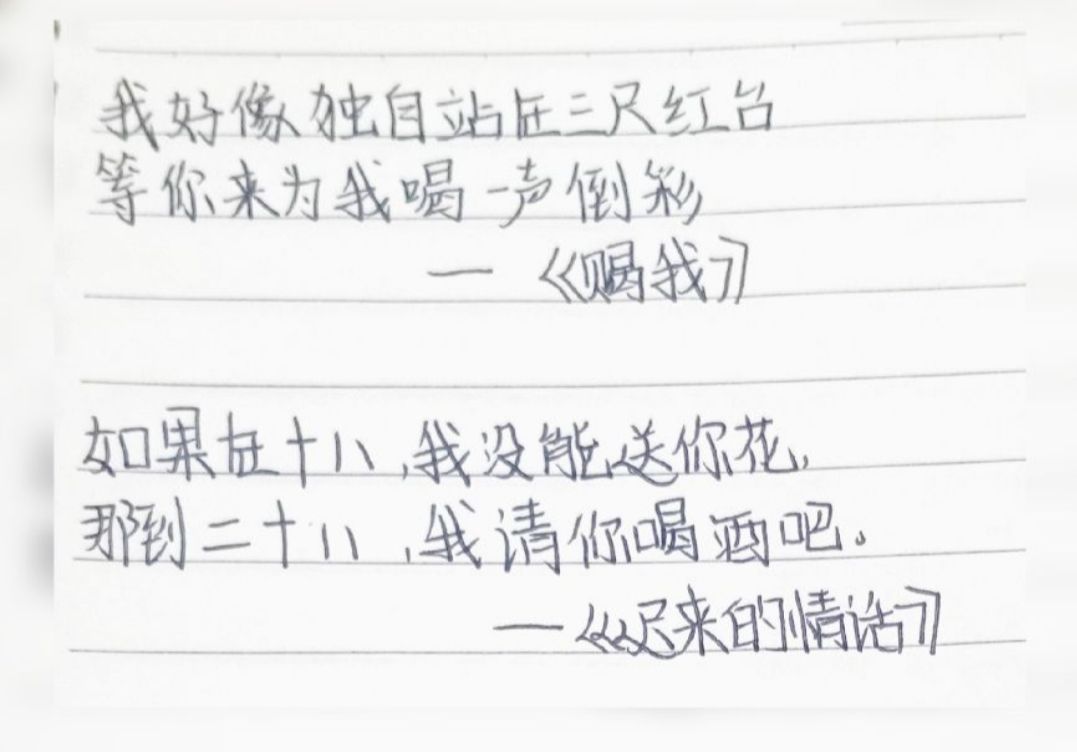 我好像独自站在三尺红台
等你来为我喝一声倒彩
—《赐我》
如果在十八,我没能送你花,
那到二十八,我请你喝酒吧。
—《迟来的情话》